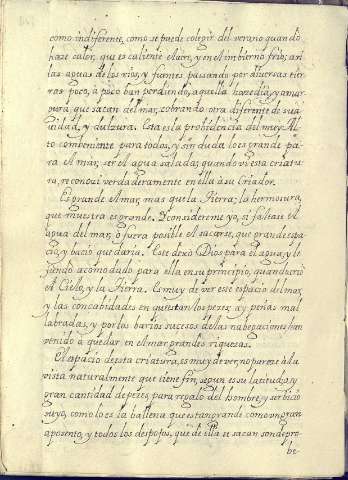 como indiferente, como se puede colegir del verano quando
haze calor, que es caliente el aere, y en el imbierno frio; asi
las aguas de los rios, y fuentes passando por diversas tier
ras poco, à poco ban perdiendo, aquella azedia, y amar
gura, que sacan del mar, cobrando otra diferente de sua
vidad, y dulzura. Esta es la probidencia del muy Al
to combeniente para todos, y sin duda lo es grande pa
ra el mar, ser el agua salada; quando vi esta criatu
ra, reconoci verdaderamente en ella à su Criador.
Es grande el mar, mas que la tierra; la hermosura,
que muestra es grande. Y consideremeyo, si faltase el
agua del mar, ò fuera posible el sacarse, que grande espa
cio, y bacio quedaria. Este dexò Dios para el agua, y le
fundo acomodado para ella en su principio, quando criò
el Cielo, y la Tierra. Es muy de ver este espacio del mar,
y las concabidades en que estan los pezes, ay peñas mal
labradas, y por los barios sucesos de las nabegaciones, han
venido à quedar en el mar grandes riquesas.
El espacio de esta criatura, es muy de ver, no parece à la
vista naturalmente que tiene fin, segun es su latitud, ay
gran cantidad de pezes, para regalo del hombre, y serbicio
suyo, como lo es la ballena que es tan grande como un gran
aposento, y todos los despojos, que de ella se sacan son de pro
be-